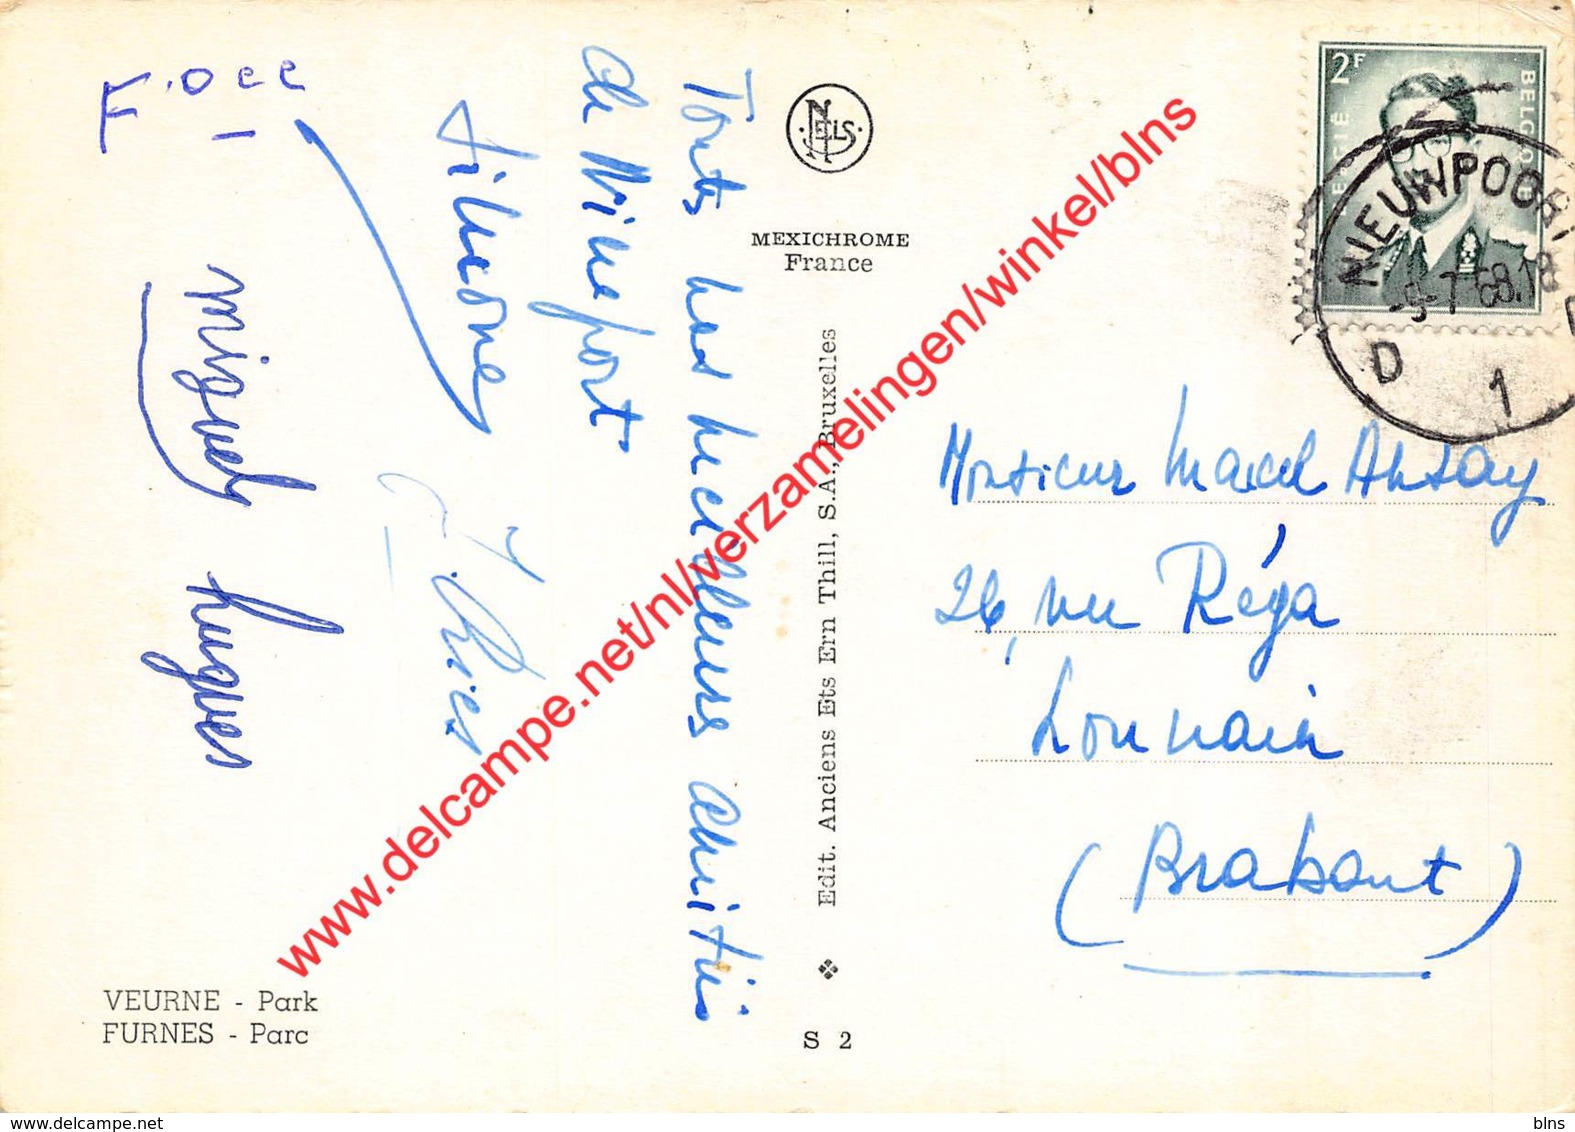 Toutes nos meilleures amitiés
de Nieuport
miguel hugues
NELS
MEXICHROME
France
Edit. Anciens Ets Ern Thill, S.A., Bruxelles
S 2
VEURNE - Park
FURNES - Parc
2F
BELGIQUE
BELGIË
NIEUWPOORT
-9-7 68.18
D 1 D
Monsieur Marcel
26, rue Réga
Louvain
(Brabant)
www.delcampe.net/nl/verzamelingen/winkel/blns
www.delcampe.net
blns